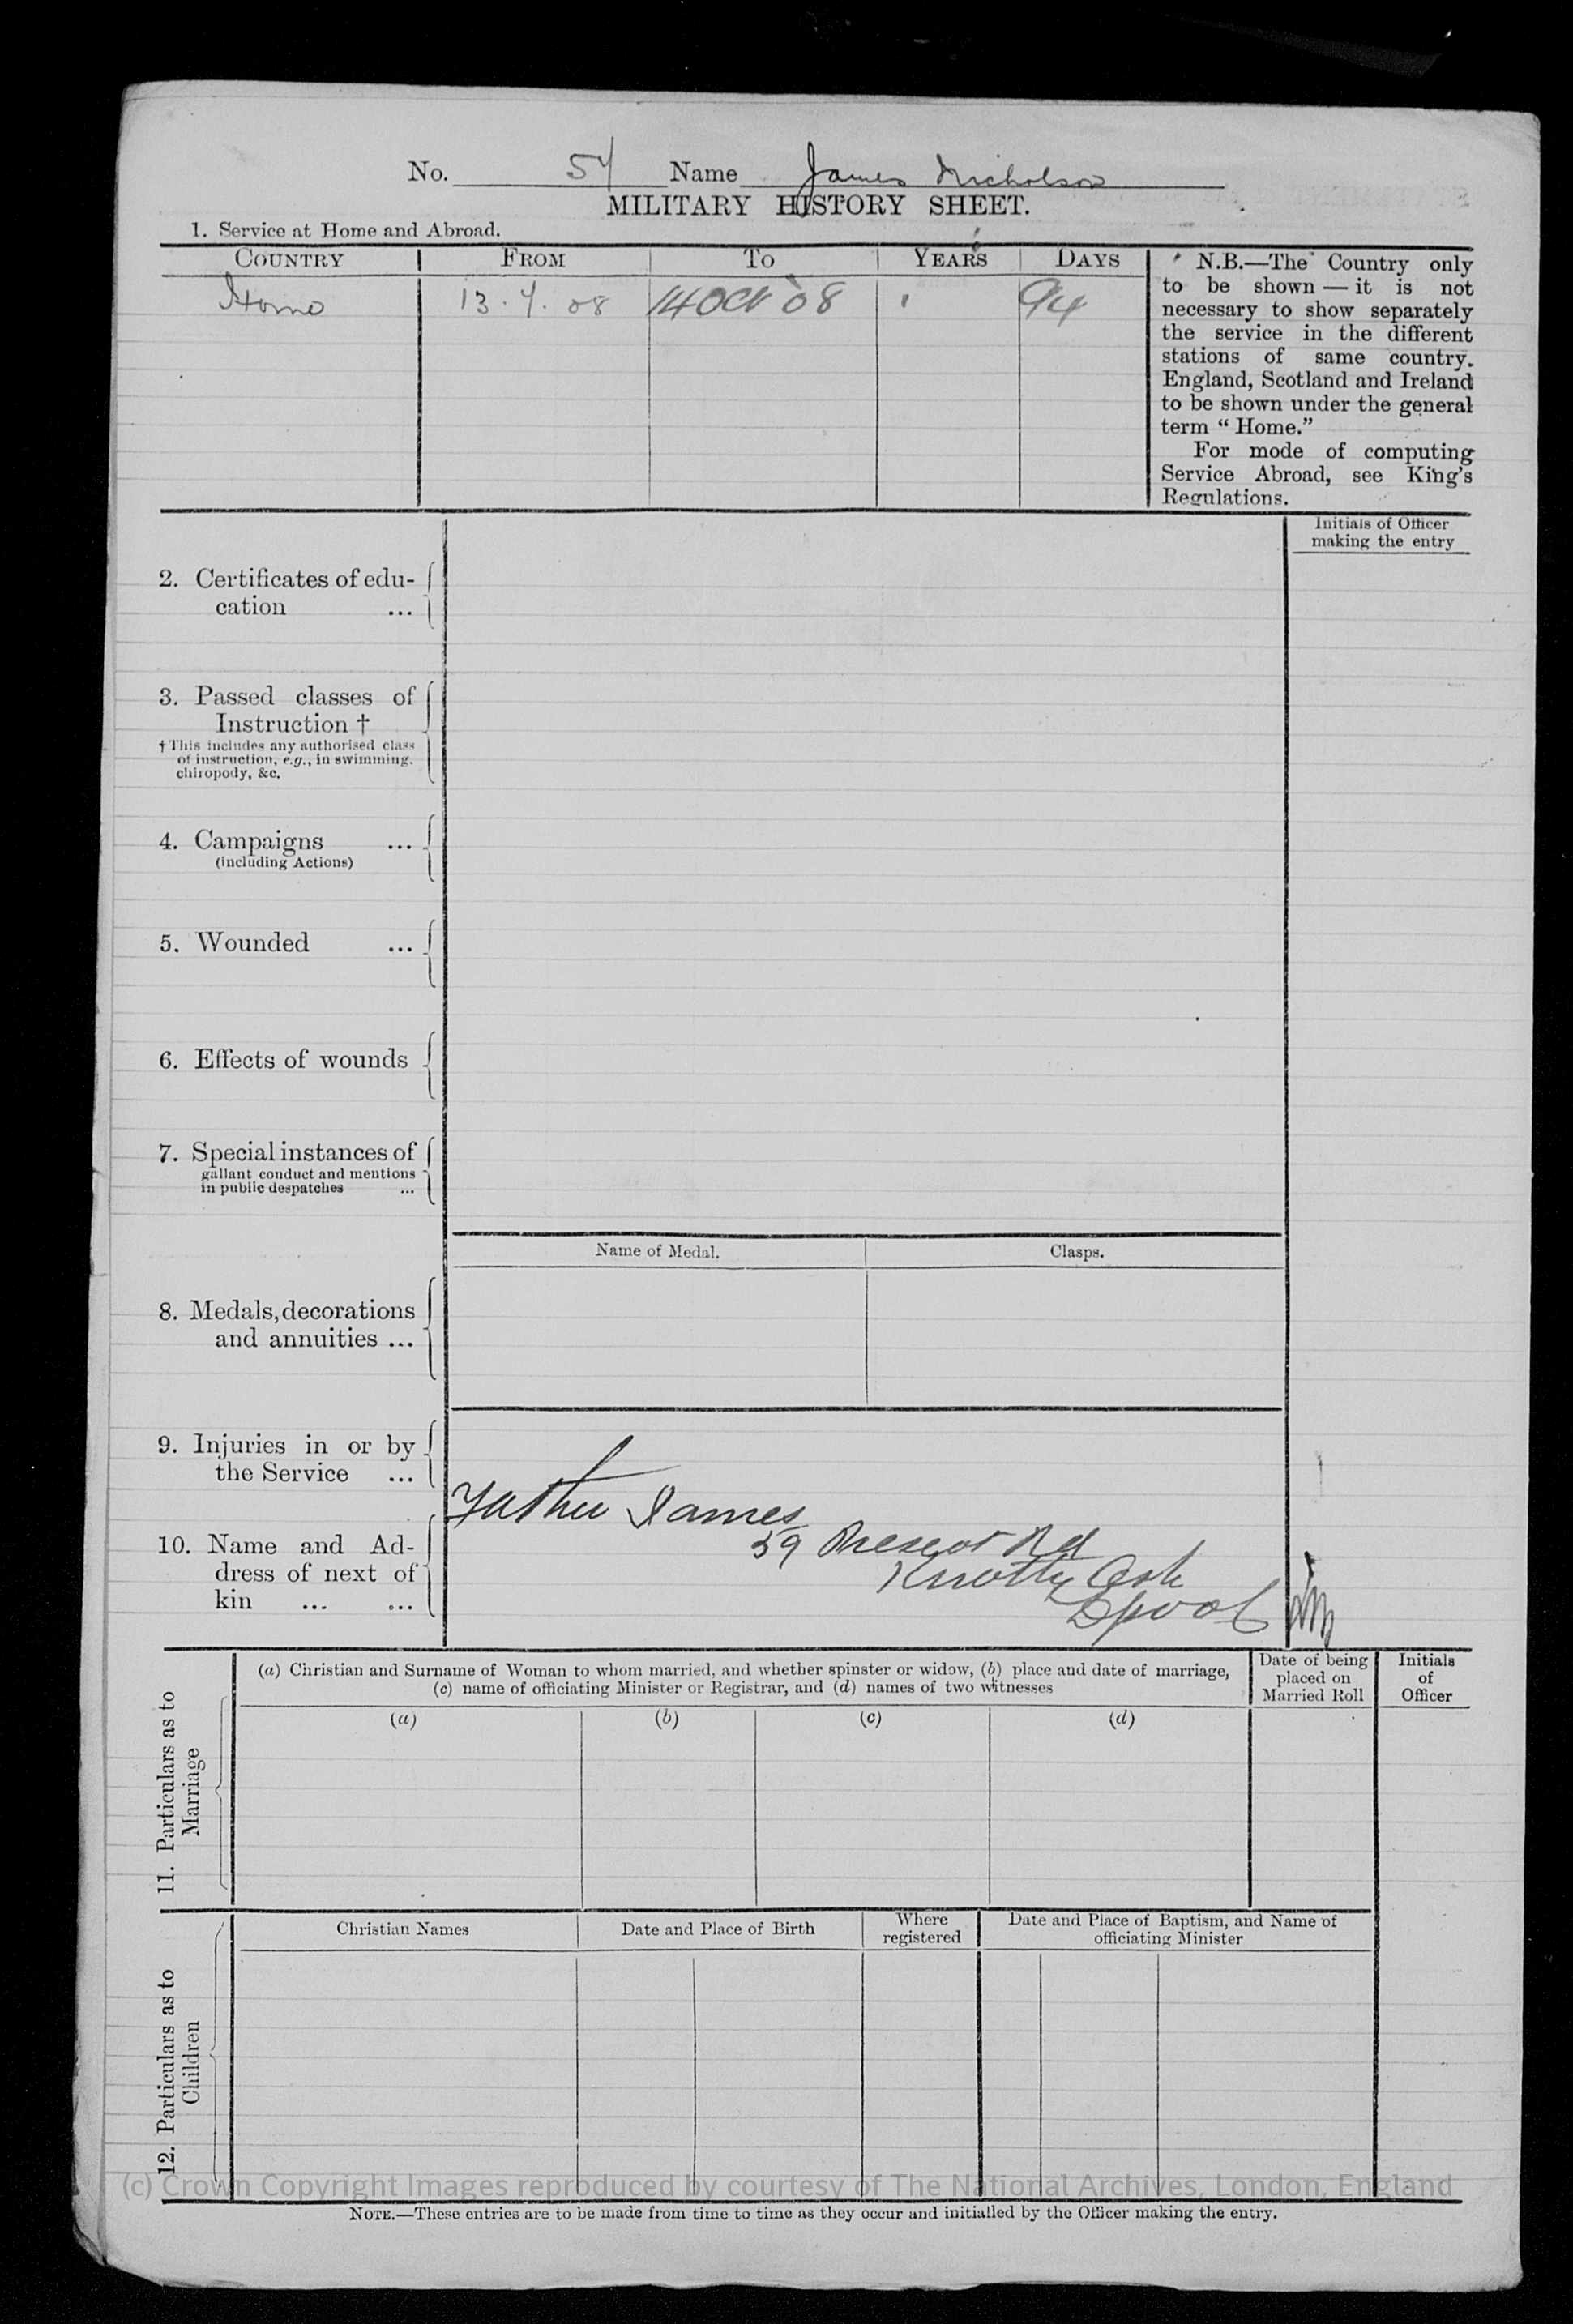 No. 57 Name James Nicholson
MILITARY HISTORY SHEET.
1. Service at Home and Abroad.
COUNTRY FROM TO YEARS DAYS
Home 13.7.08 14 Oct 08 94
N.B.—The Country only
to be shown — it is not
necessary to show separately
the service in the different
stations of same country.
England, Scotland and Ireland
to be shown under the general
term “ Home.”
For mode of computing
Service Abroad, see King's
Regulations.
Initials of Officer
making the entry
2. Certificates of edu-
cation ...
3. Passed classes of
Instruction †
† This includes any authorised class
of instruction, e.g., in swimming,
chiropody, &c.
4. Campaigns ...
(including Actions)
5. Wounded ...
6. Effects of wounds
7. Special instances of
gallant conduct and mentions
in public despatches ...
Name of Medal. Clasps.
8. Medals, decorations
and annuities ...
9. Injuries in or by
the Service ...
10. Name and Ad-
dress of next of
kin ... ...
Father James
59 Prescot Rd
Knotty Ash
Lpool
11. Particulars as to
Marriage
(a) Christian and Surname of Woman to whom married, and whether spinster or widow, (b) place and date of marriage,
(c) name of officiating Minister or Registrar, and (d) names of two witnesses
Date of being
placed on
Married Roll
Initials
of
Officer
(a) (b) (c) (d)
12. Particulars as to
Children
Christian Names
Date and Place of Birth
Where
registered
Date and Place of Baptism, and Name of
officiating Minister
(c) Crown Copyright Images reproduced by courtesy of The National Archives, London, England
NOTE.—These entries are to be made from time to time as they occur and initialled by the Officer making the entry.